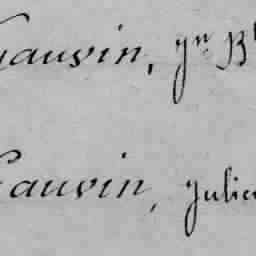 Gauvin, Jn Bt
Gauvin, Julien